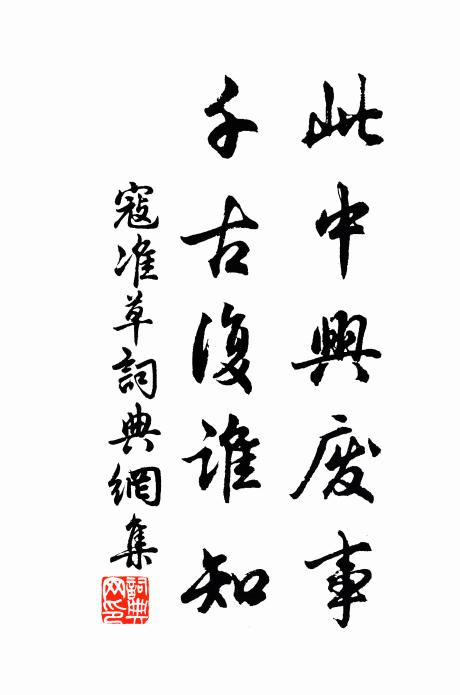 此中興废事
千古復谁知
寇准草詞典網集
詞典网印